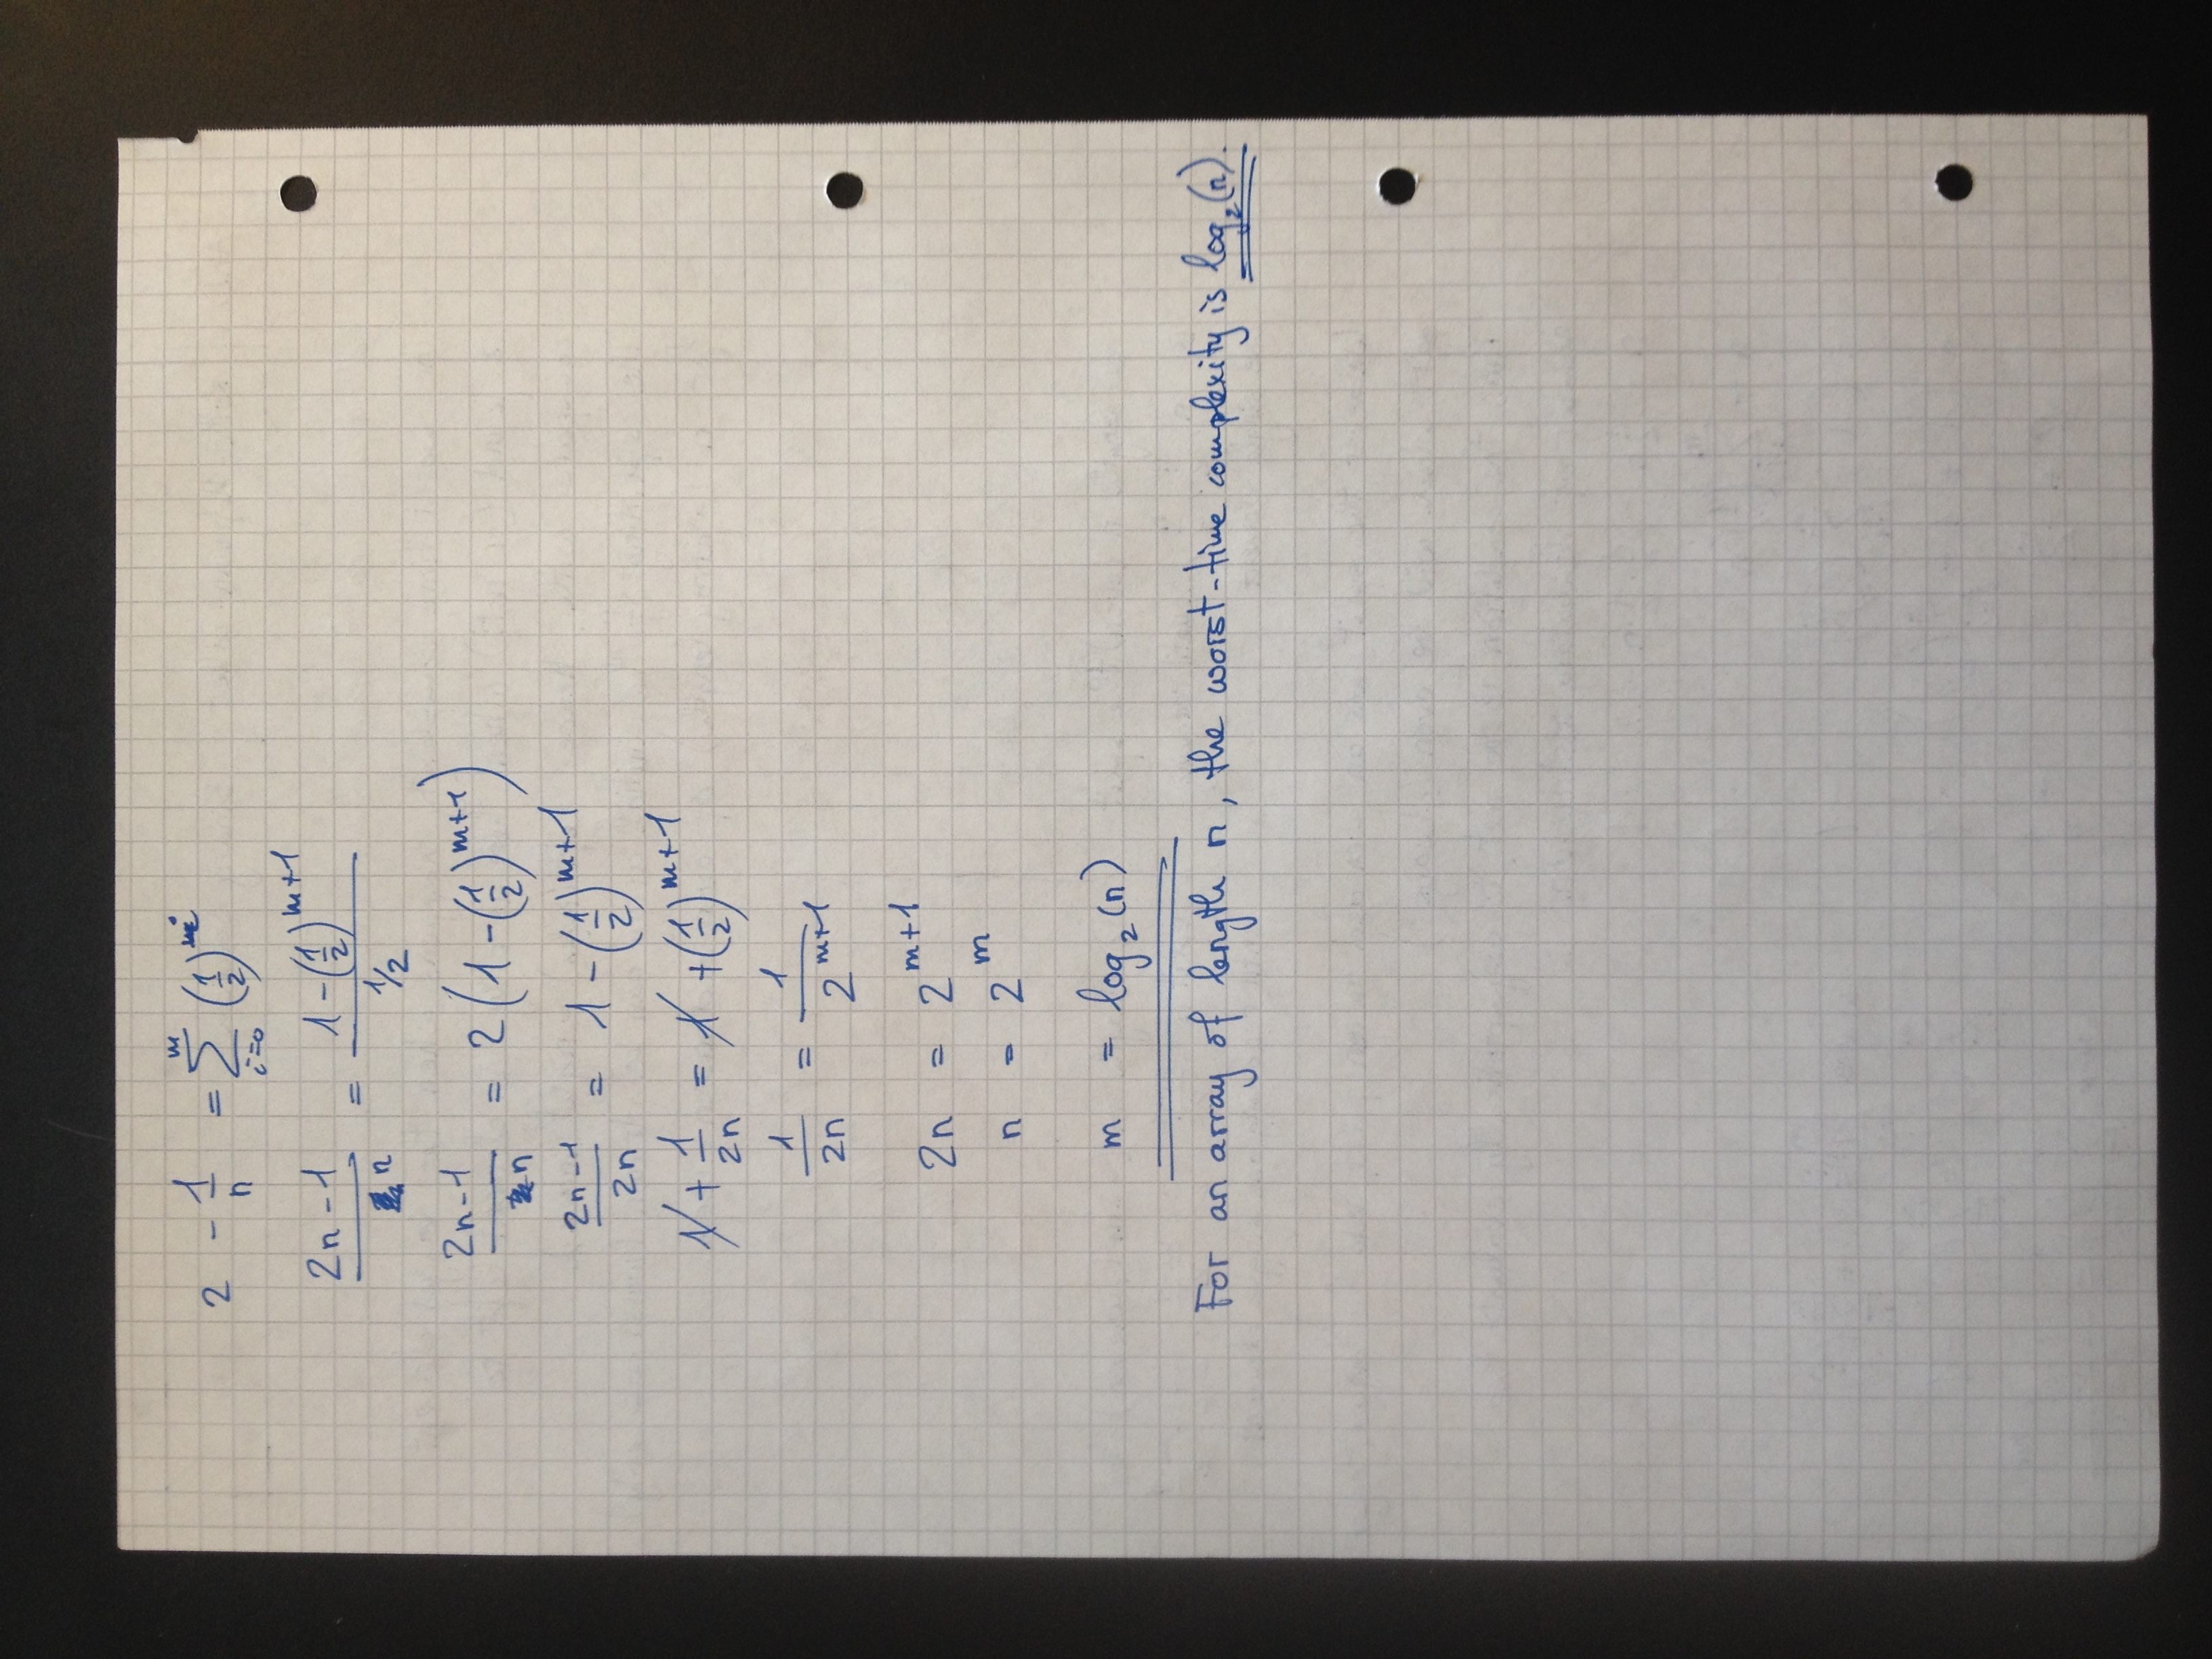 2 - 1/n = ∑_{i=0}^{m} (1/2)^i
(2n-1)/n = (1-(1/2)^{m+1})/(1/2)
(2n-1)/n = 2(1-(1/2)^{m+1})
(2n-1)/2n = 1-(1/2)^{m+1}
1 + 1/2n = 1 + (1/2)^{m+1}
1/2n = 1/2^{m+1}
2n = 2^{m+1}
n = 2^m
m = log₂(n)
For an array of length n, the worst-time complexity is log₂(n).